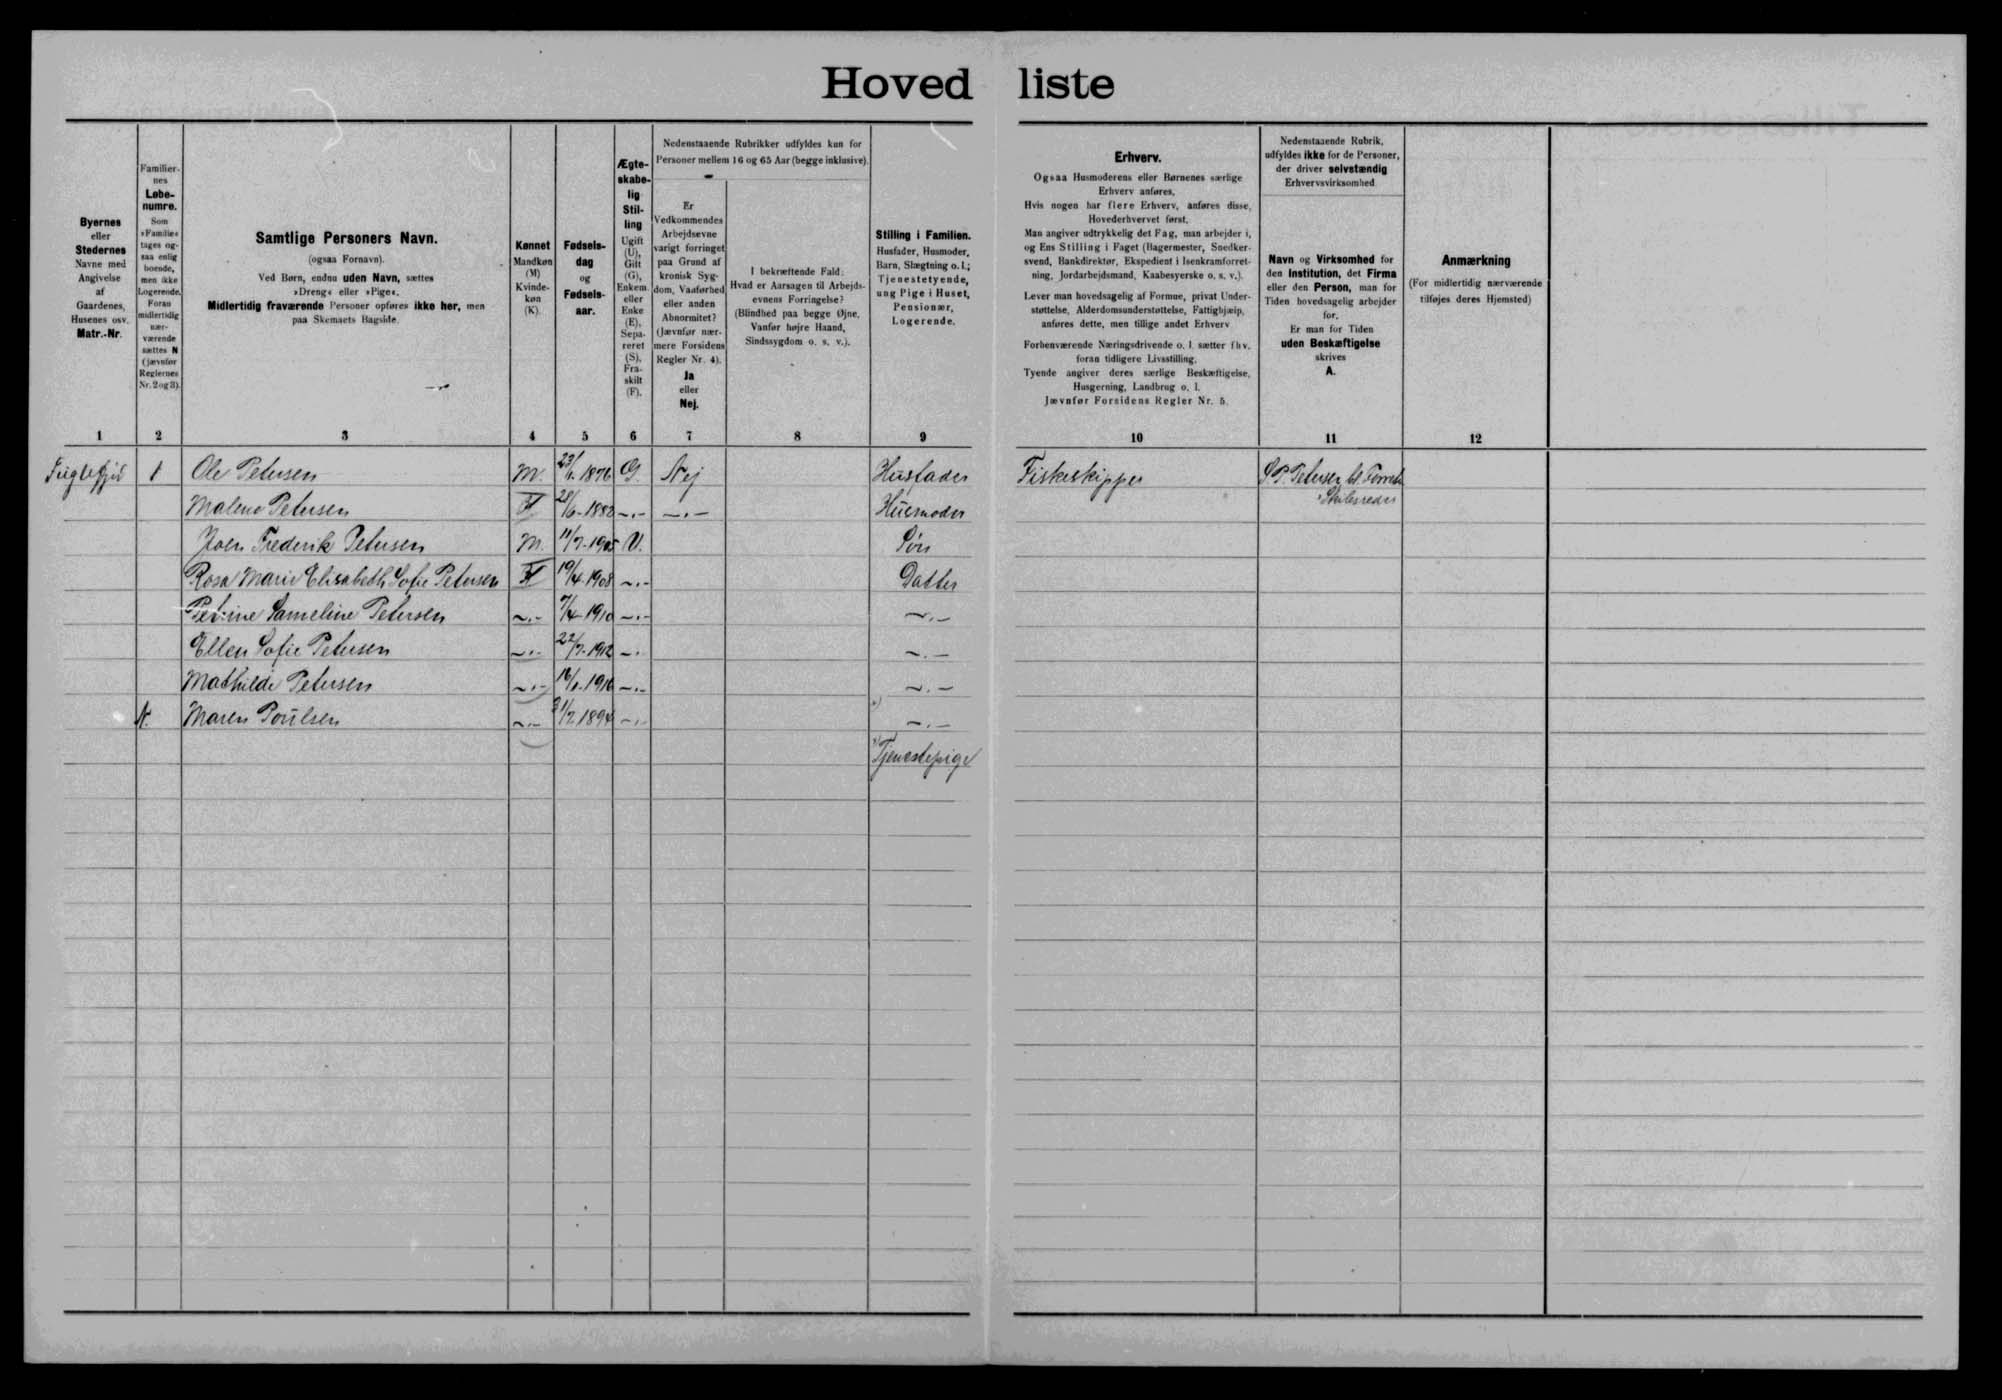 Hovedliste
Byernes
eller
Stedernes
Navne med
Angivelse
af
Gaardenes,
Husenes osv.
Matr.-Nr.
Familier-
nes
Løbe-
numre.
Som
»Familie«
tages og-
saa enlig
boende,
men ikke
Logerende.
Foran
midlertidig
nær-
værende
sættes N
(jævnfør
Reglernes
Nr. 2 og 3).
Samtlige Personers Navn.
(ogsaa Fornavn).
Ved Børn, endnu uden Navn, sættes
»Dreng« eller »Pige«.
Midlertidig fraværende Personer opføres ikke her, men
paa Skemaets Bagside.
Kønnet
Mandkøn
(M)
Kvinde-
køn
(K).
Fødsels-
dag
og
Fødsels-
aar.
Ægte-
skabe-
lig
Stil-
ling
Ugift
(U),
Gift
(G),
Enkem.
eller
Enke
(E),
Sepa-
reret
(S),
Fra-
skilt
(F).
Nedenstaaende Rubrikker udfyldes kun for
Personer mellem 16 og 65 Aar (begge inklusive).
Er
Vedkommendes
Arbejdsevne
varigt forringet
paa Grund af
kronisk Syg-
dom, Vanførhed
eller anden
Abnormitet?
(Jævnfør nær-
mere Forsidens
Regler Nr. 4).
Ja
eller
Nej.
I bekræftende Fald:
Hvad er Aarsagen til Arbejds-
evnens Forringelse?
(Blindhed paa begge Øjne,
Vanfør højre Haand,
Sindssygdom o. s. v.).
Stilling i Familien.
Husfader, Husmoder,
Barn, Slægtning o. l.;
Tjenestetyende,
ung Pige i Huset,
Pensionær,
Logerende.
Erhverv.
Ogsaa Husmoderens eller Børnenes særlige
Erhverv anføres.
Hvis nogen har flere Erhverv, anføres disse,
Hovederhvervet først.
Man angiver udtrykkelig det Fag, man arbejder i,
og Ens Stilling i Faget (Bagermester, Snedker-
svend, Bankdirektør, Ekspedient i Isenkramforret-
ning, Jordarbejdsmand, Kaabesyerske o. s. v.).
Lever man hovedsagelig af Formue, privat Under-
støttelse, Alderdomsunderstøttelse, Fattighjælp,
anføres dette, men tillige andet Erhverv
Forhenværende Næringsdrivende o. l. sætter fhv.
foran tidligere Livsstilling.
Tyende angiver deres særlige Beskæftigelse,
Husgerning, Landbrug o. l.
Jævnfør Forsidens Regler Nr. 5.
Nedenstaaende Rubrik,
udfyldes ikke for de Personer,
der driver selvstændig
Erhvervsvirksomhed
Navn og Virksomhed for
den Institution, det Firma
eller den Person, man for
Tiden hovedsagelig arbejder
for.
Er man for Tiden
uden Beskæftigelse
skrives
A.
Anmærkning
(For midlertidig nærværende
tilføjes deres Hjemsted)
1 2 3 4 5 6 7 8 9 10 11 12
Fuglefjrd 1 Ole Petersen M. 1876 G. Nej Husfader Fiskeskipper S. P. Petersen
Malene Petersen K 28/6-1882 -.- -.- Husmoder Skibsreder
Joen Frederik Petersen M. 11/7-1905 U. Søn
Rosa Marie Elisabeth Sofie Petersen K 19/4-1908 -.- Datter
Petrine Sameline Petersen -.- 7/4-1910 -.- -.-
Ellen Sofie Petersen -.- 22/7-1912 -.- -.-
Mathilde Petersen -.- 16/1-1916 -.- -.-
N. Maren Poulsen -.- 31/7 1894 -.- x) -.-
x) Tjenestepige